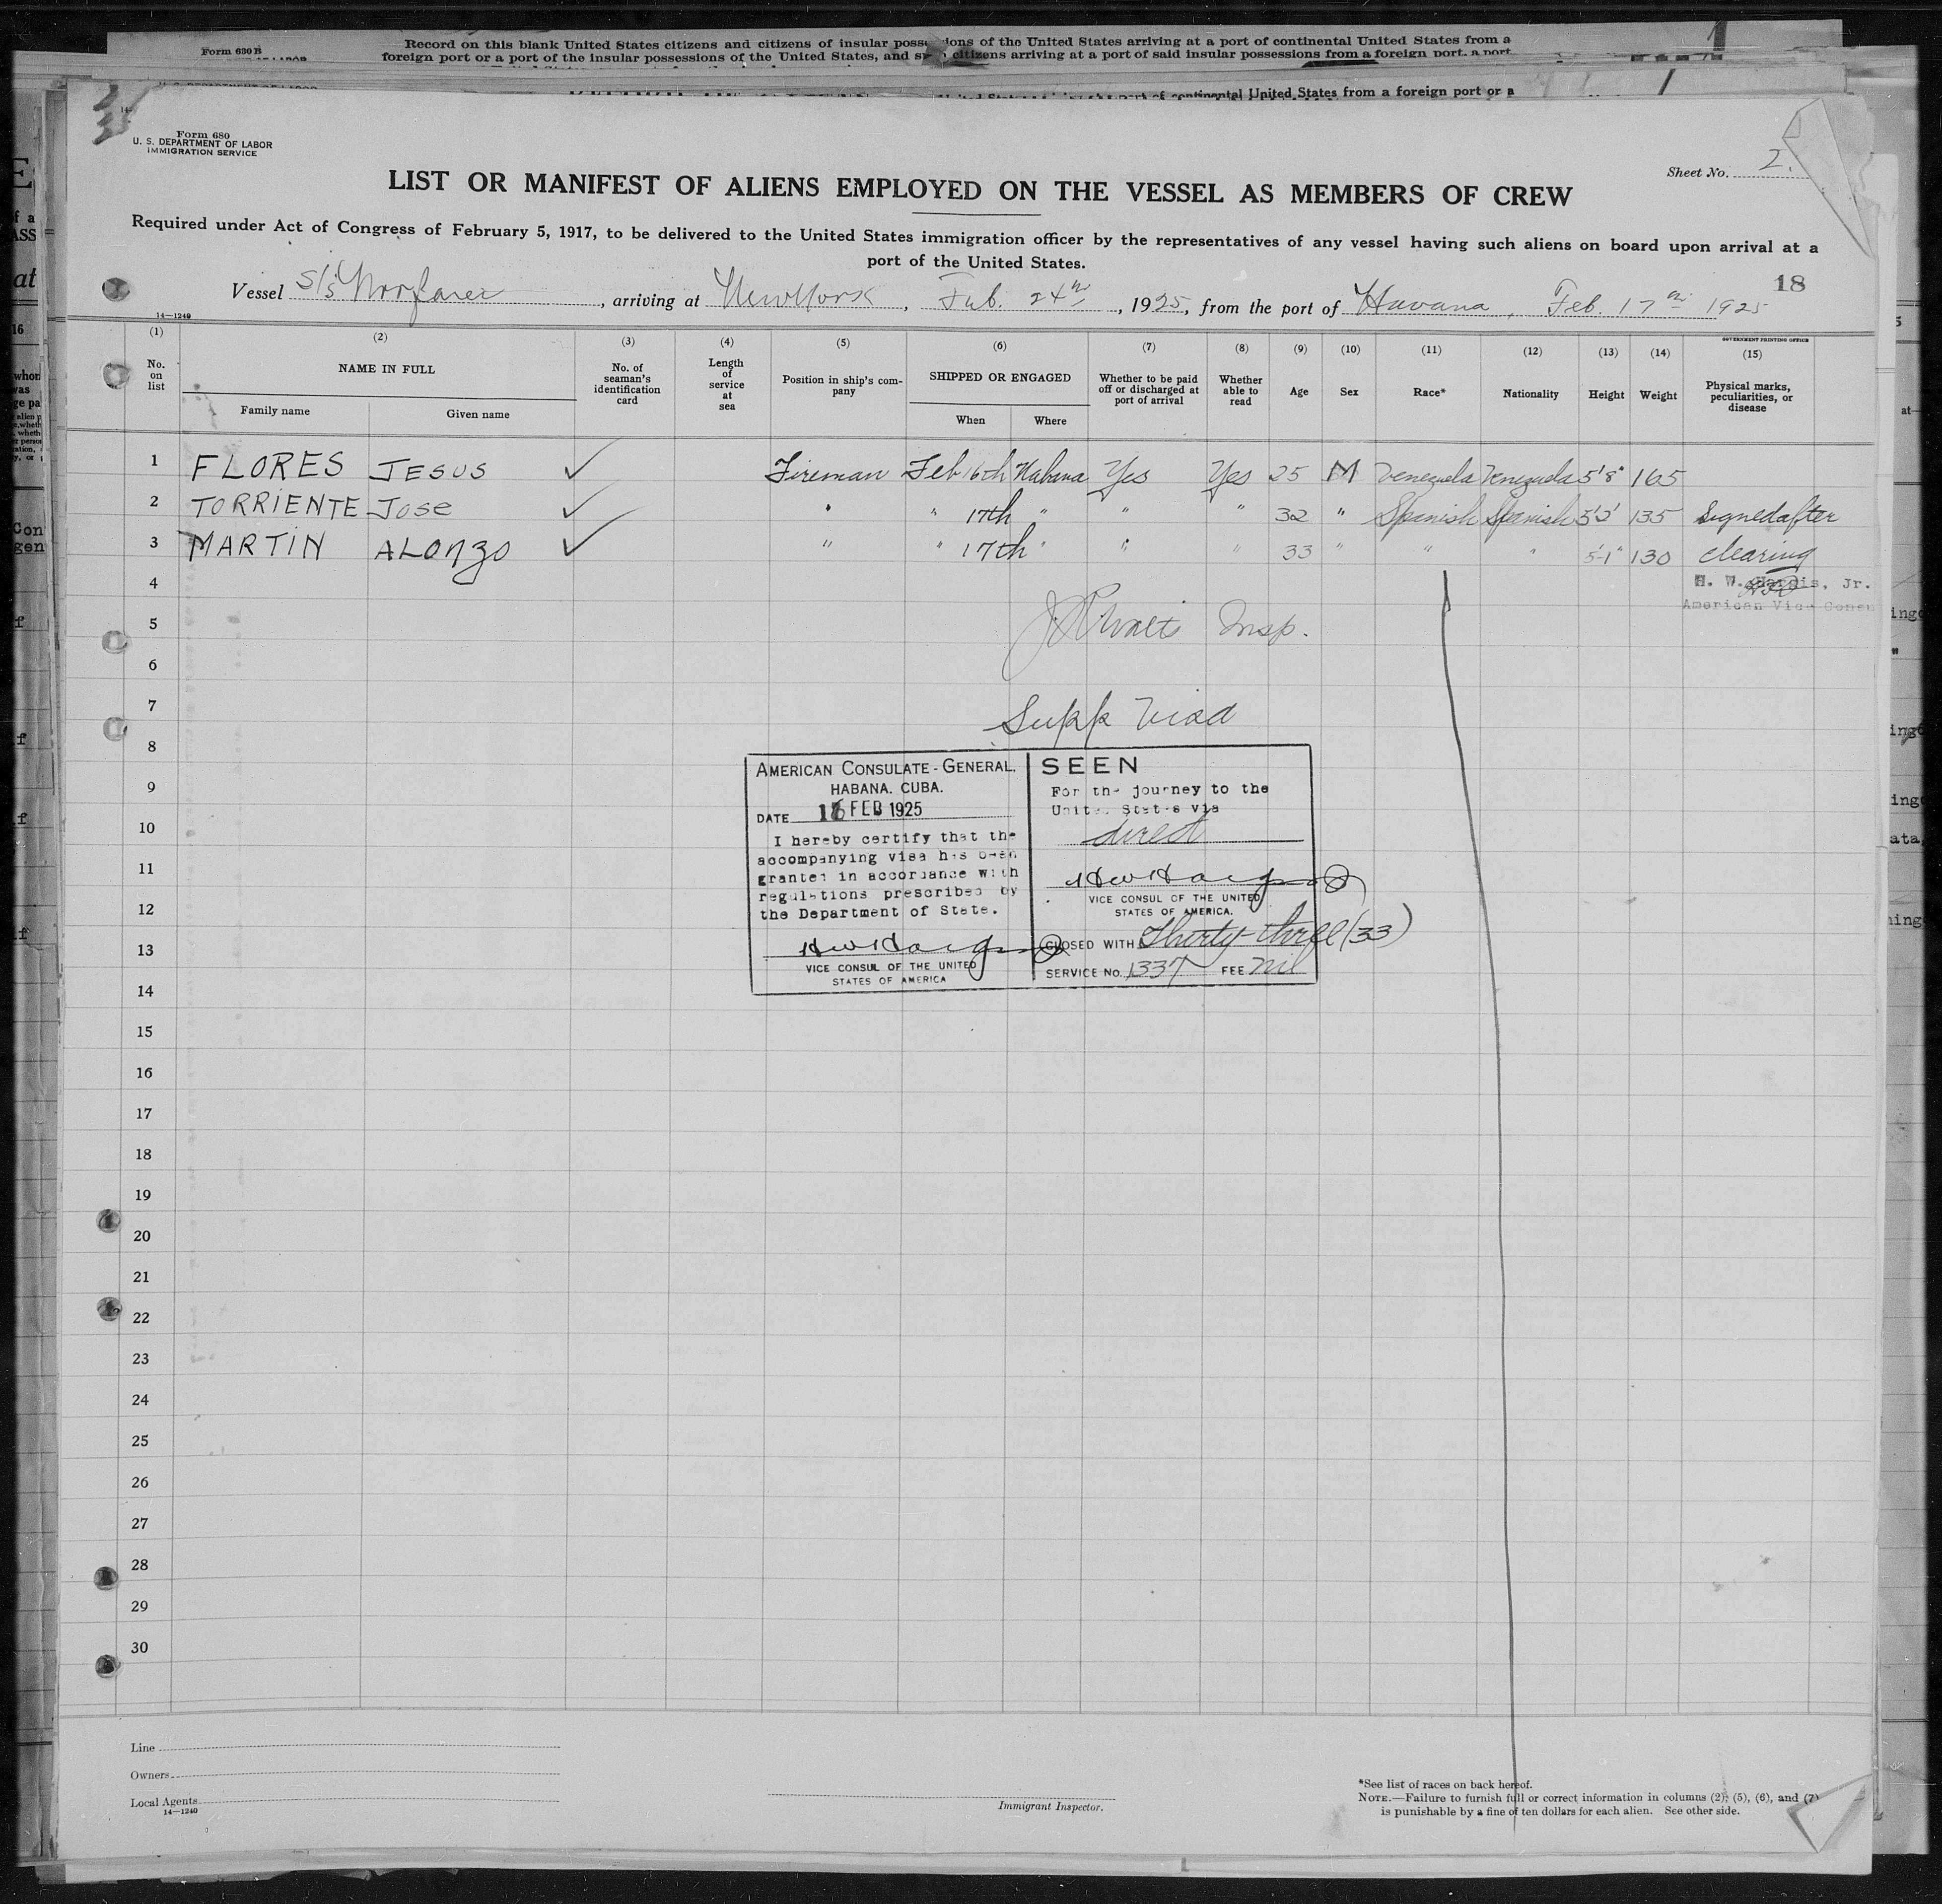 Form 630 B
Record on this blank United States citizens and citizens of insular possessions of the United States arriving at a port of continental United States from a
foreign port or a port of the insular possessions of the United States, and citizens arriving at a port of said insular possessions from a foreign port, a port
of continental United States from a foreign port or a
Form 680
U. S. DEPARTMENT OF LABOR
IMMIGRATION SERVICE
Sheet No. 2.
LIST OR MANIFEST OF ALIENS EMPLOYED ON THE VESSEL AS MEMBERS OF CREW
Required under Act of Congress of February 5, 1917, to be delivered to the United States immigration officer by the representatives of any vessel having such aliens on board upon arrival at a
port of the United States.
18
Vessel S/S , arriving at New York , Feb. 24th , 1925, from the port of Havana , Feb. 17th 1925
14—1240
GOVERNMENT PRINTING OFFICE
(1) (2) (3) (4) (5) (6) (7) (8) (9) (10) (11) (12) (13) (14) (15)
No. on list
NAME IN FULL
Family name
Given name
No. of seaman's identification card
Length of service at sea
Position in ship's company
SHIPPED OR ENGAGED
When
Where
Whether to be paid off or discharged at port of arrival
Whether able to read
Age
Sex
Race*
Nationality
Height
Weight
Physical marks, peculiarities, or disease
1 FLORES JESUS ✓ Fireman Feb 16th Habana Yes Yes 25 M Venezuela Venezuela 5'8" 165
2 TORRIENTE Jose ✓ " " 17th " " " 32 " Spanish Spanish 5'2' 135 Signed after
3 MARTIN ALONZO ✓ " " 17th " " " 33 " " " 5'-1" 130 clearing
4 H. W. Harris, Jr.
American Vice Consu
5 Insp.
6
7 Supp Visad
8
9
10
11
12
13
14
AMERICAN CONSULATE-GENERAL.
HABANA. CUBA.
DATE FEB 1925
I hereby certify that the
accompanying visa has been
granted in accordance with
regulations prescribed by
the Department of State.
VICE CONSUL OF THE UNITED
STATES OF AMERICA
SEEN
For the journey to the
United States via
direct
VICE CONSUL OF THE UNITED
STATES OF AMERICA.
CLOSED WITH Thirty-three (33)
SERVICE No. 1337 FEE nil
15
16
17
18
19
20
21
22
23
24
25
26
27
28
29
30
Line
Owners
Local Agents
14—1240
Immigrant Inspector.
*See list of races on back hereof.
NOTE.—Failure to furnish full or correct information in columns (2), (5), (6), and (7)
is punishable by a fine of ten dollars for each alien. See other side.